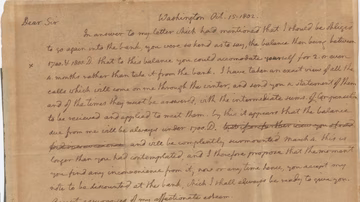 Washington Oct. 15. 1802.
Dear Sir
In answer to my letter which mentioned that I should be obliged
to go again into the bank, you were so kind as to say, the balance then being between
1700. & 1800. D. that to this balance you could accomodate yourself for 2. or
a month rather than take it from the bank. I have taken an exact view of all the
calls which will come on me through the winter, and send you a statement of them
and of the times they must be answered, with the intermediate sums of compensation
to be received and applied to meet them. by this it appears that the balance
due from me will be always under 1700. D.
and will be compleatly surmounted March. this is
longer than you had contemplated, and I therefore propose that the moment
you find any inconvenience from it, now or any time hence, you accept my
note to be discounted at the bank, which I shall always be ready to give you
assurances of my affectionate esteem